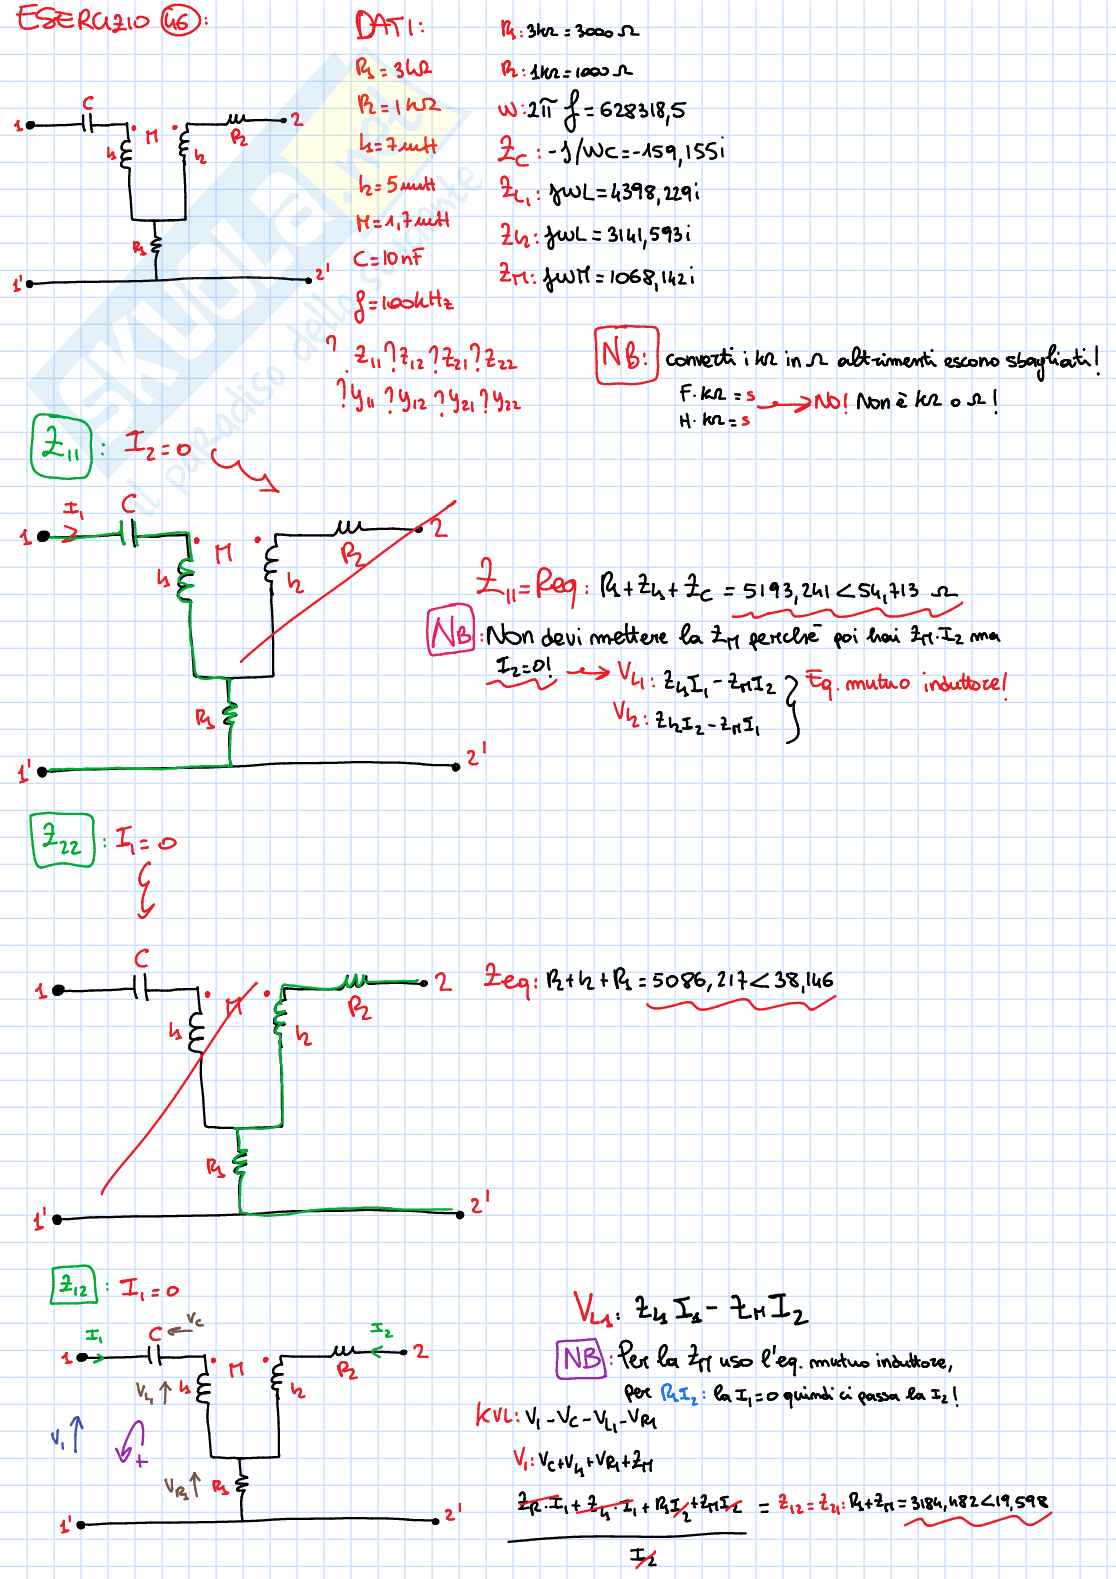 ESERCIZIO 46:
DATI:
R1 = 3kΩ
R2 = 1kΩ
L1 = 7mH
L2 = 5mH
M = 1,7mH
C = 10nF
f = 100kHz
? Z11 ? Z12 ? Z21 ? Z22
? y11 ? y12 ? y21 ? y22
R1: 3kΩ = 3000Ω
R2: 1kΩ = 1000Ω
W: 2π f = 628318,5
ZC: -J/WC = -159,155i
ZL1: JWL = 4398,229i
ZL2: JWL = 3141,593i
ZM: JWM = 1068,142i
1
C
L1
M
L2
R2
2
R1
1'
2'
NB: converti i kΩ in Ω altrimenti escono sbagliati!
F·kΩ = s → NO! Non è kΩ o Ω!
H·kΩ = s
SKUOLA.net
il paradiso dello studente
Z11: I2 = 0
I1
C
1
L1
M
L2
R2
2
R1
1'
2'
Z11 = Req: R1 + ZL1 + ZC = 5193,241 < 54,713 Ω
NB: Non devi mettere la ZM perché poi hai ZM·I2 ma
I2 = 0! → VL1: ZL1I1 - ZMI2 } Eq. mutuo induttore!
VL2: ZL2I2 - ZMI1
Z22: I1 = 0
C
1
L1
M
L2
R2
2
R1
1'
2'
Zeq: R2 + L2 + R1 = 5086,217 < 38,146
Z12: I1 = 0
I1
C
VC
I2
1
VL1
L1
M
L2
R2
2
V1
+
VR1
R1
1'
2'
VL1: ZL1 I1 - ZM I2
NB: Per la ZM uso l'eq. mutuo induttore,
per R1I2: la I1=0 quindi ci passa la I2!
KVL: V1 - VC - VL1 - VR1
V1: VC + VL1 + VR1 + ZM
ZC·I1 + ZL1·I1 + R1I2 + ZMI2 = Z12 = Z21: R1 + ZM = 3184,482 < 19,598
I2